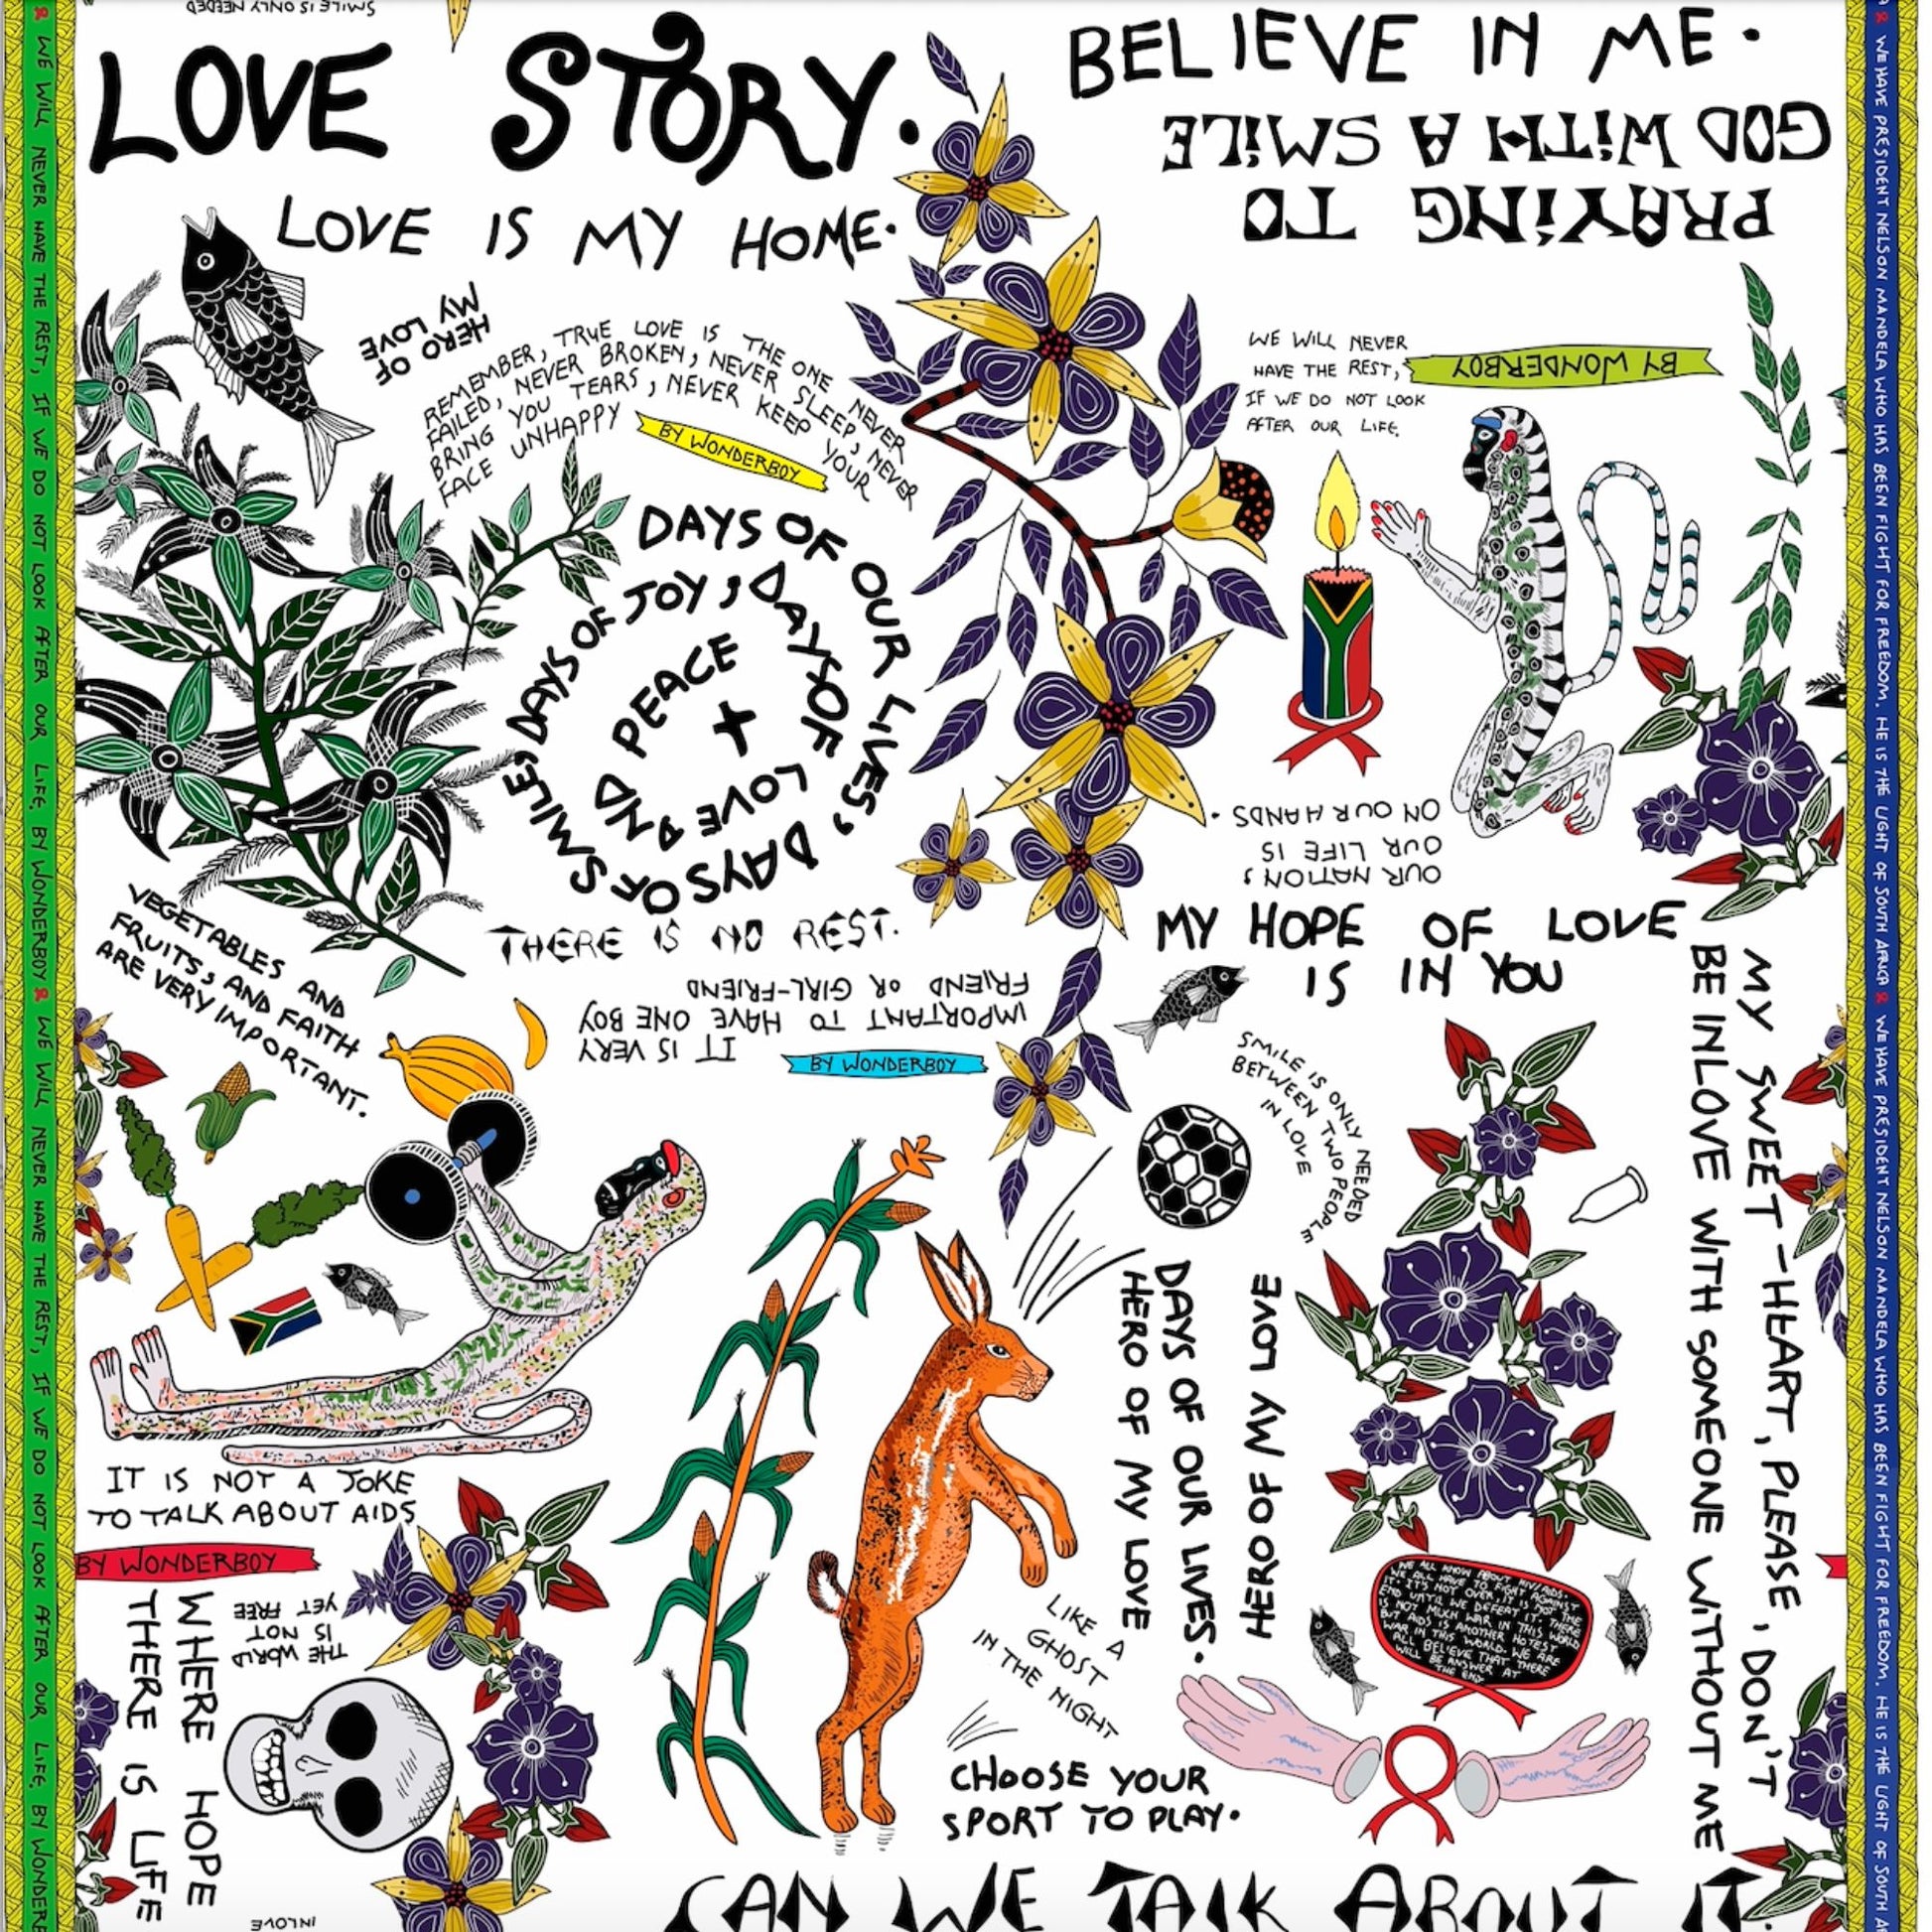 SMILE IS ONLY NEEDED
LOVE STORY.
BELIEVE IN ME.
PRAYING TO
GOD WITH A SMILE
LOVE IS MY HOME.
HERO OF
MY LOVE
REMEMBER, TRUE LOVE IS THE ONE NEVER
FAILED, NEVER BROKEN, NEVER SLEEP, NEVER
BRING YOU TEARS, NEVER KEEP YOUR
FACE UNHAPPY
BY WONDERBOY
WE WILL NEVER
HAVE THE REST,
IF WE DO NOT LOOK
AFTER OUR LIFE.
BY WONDERBOY
DAYS OF OUR LIVES, DAYS OF SMILE, DAYS OF JOY, DAYS OF LOVE AND PEACE +
OUR NATION,
OUR LIFE IS
ON OUR HANDS.
THERE IS NO REST.
MY HOPE OF LOVE
IS IN YOU
VEGETABLES AND
FRUITS, AND FAITH
ARE VERY IMPORTANT.
IT IS VERY
IMPORTANT TO HAVE ONE BOY
FRIEND OR GIRL-FRIEND
BY WONDERBOY
SMILE IS ONLY NEEDED
BETWEEN TWO PEOPLE
IN LOVE
MY SWEET-HEART, PLEASE, DON'T
BE INLOVE WITH SOMEONE WITHOUT ME
DAYS OF OUR LIVES.
HERO OF MY LOVE
HERO OF MY LOVE
IT IS NOT A JOKE
TO TALK ABOUT AIDS
BY WONDERBOY
THE WORLD
IS NOT
YET FREE
WHERE HOPE
THERE IS LIFE
LIKE A
GHOST
IN THE NIGHT
WE ALL KNOW ABOUT HIV/AIDS.
WE ALL HAVE TO FIGHT AGAINST
IT. IT'S NOT OVER, IT IS NOT THE
END UNTIL WE DEFEAT IT. THERE
IS NOT MUCH WAR IN THIS WORLD
BUT AIDS IS ANOTHER HOTEST
WAR IN THIS WORLD. WE ARE
ALL BELIEVE THAT THERE
WILL BE ANSWER AT
THE END.
CHOOSE YOUR
SPORT TO PLAY.
INLOVE
CAN WE TALK ABOUT IT.
& WE WILL NEVER HAVE THE REST, IF WE DO NOT LOOK AFTER OUR LIFE. BY WONDERBOY & WE WILL NEVER HAVE THE REST, IF WE DO NOT LOOK AFTER OUR LIFE. BY WONDERB
A & WE HAVE PRESIDENT NELSON MANDELA WHO HAS BEEN FIGHT FOR FREEDOM. HE IS THE LIGHT OF SOUTH AFRICA & WE HAVE PRESIDENT NELSON MANDELA WHO HAS BEEN FIGHT FOR FREEDOM. HE IS THE LIGHT OF SOUTH A